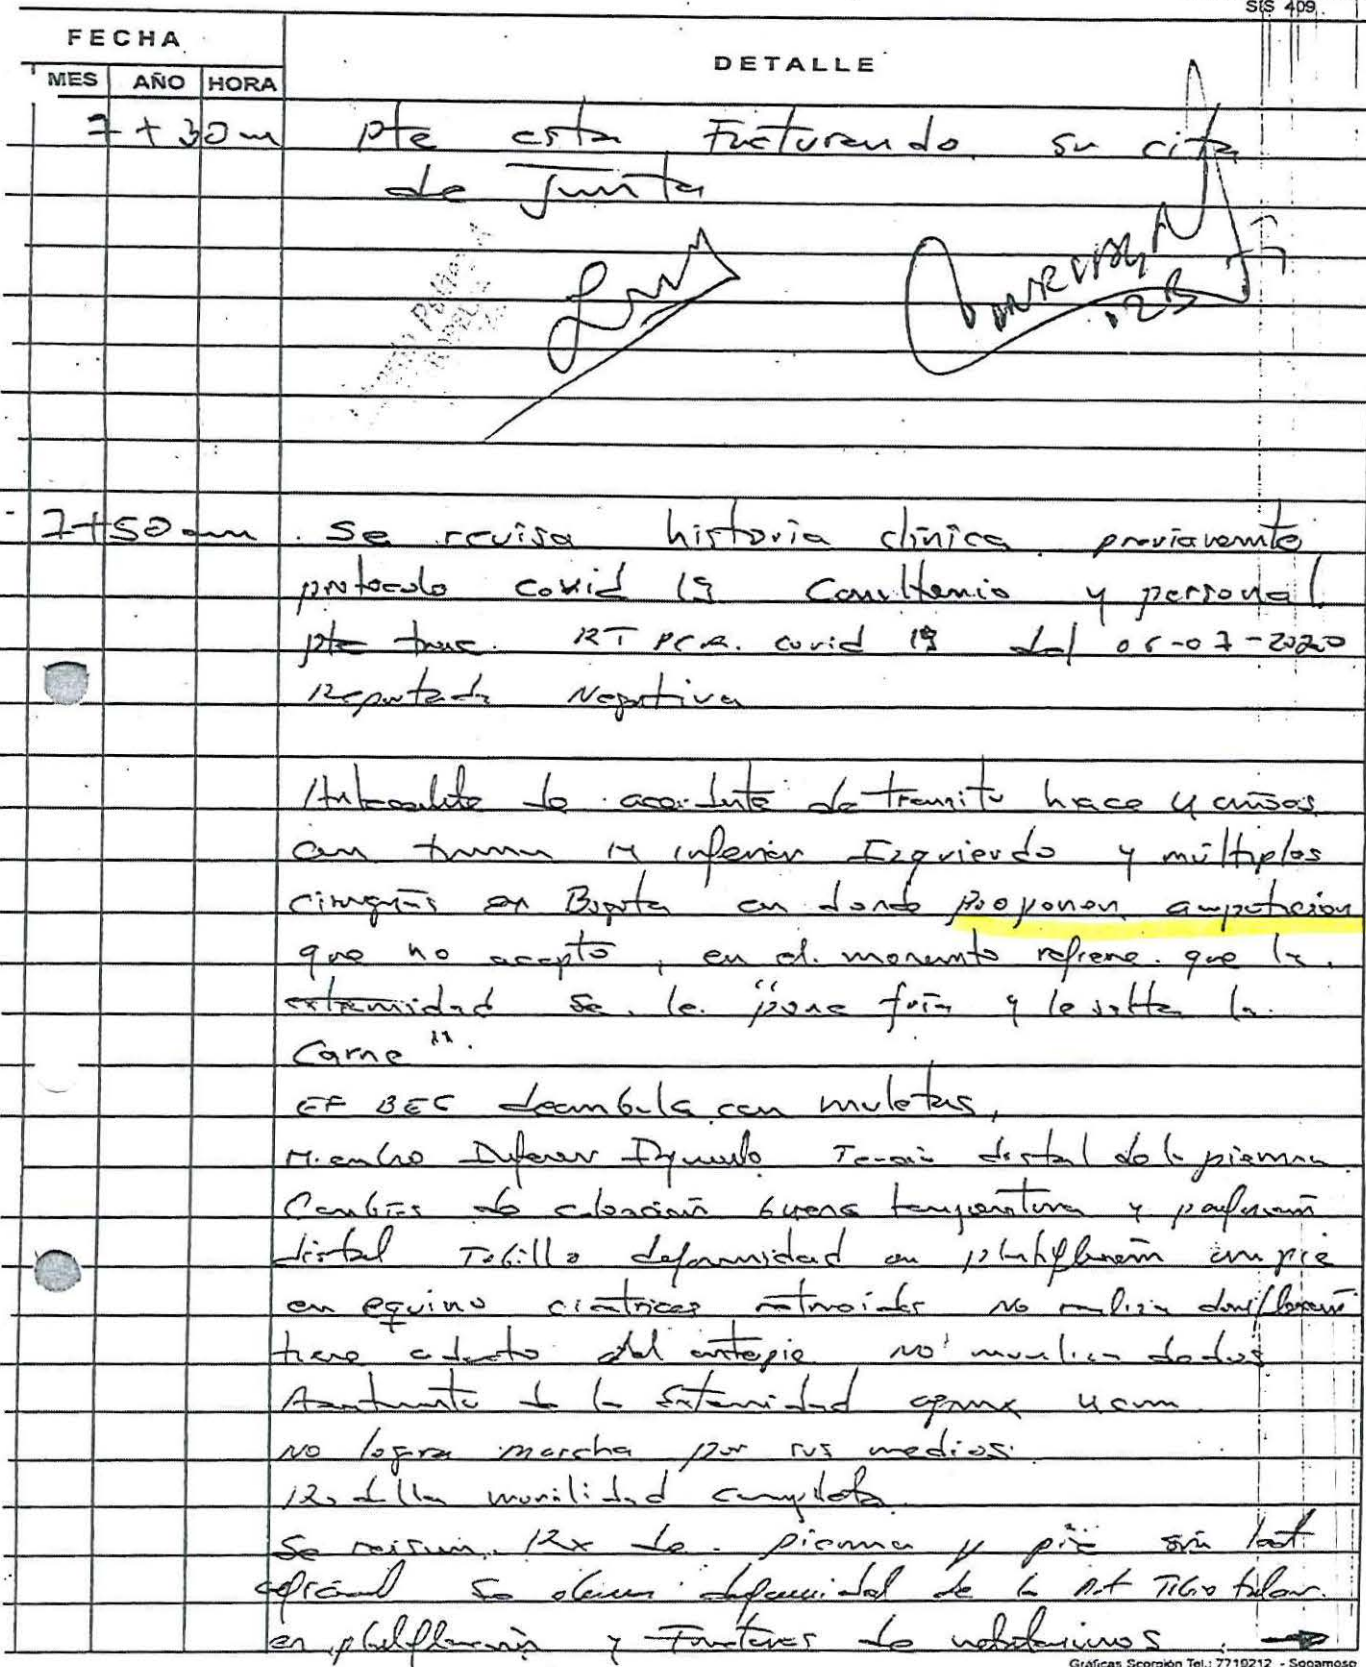 SIS 409
FECHA
DETALLE
MES AÑO HORA
7+30m pte esta Facturando su cita
de Junta
7+50am Se revisa historia clinica previamente
protocolo covid 19 Consultorio y personal
pte trae RT PCR. covid 19 del 06-07-2020
Reportada Negativa
Antecedente de accidente de transito hace 4 años
con trauma M inferior Izquierdo y múltiples
cirugías en Bogota en donde proponen amputacion
que no acepto, en el momento refiere que la
extremidad se le "pone fria y le salta la
Carne".
EF BEG deambula con muletas,
Miembro Inferior Izquierdo Tercio distal de la pierna
Cambios de coloración buena temperatura y perfusion
distal Tobillo deformidad en plantiflexion con pie
en equino cicatrices retraidas No realiza dorsiflexion
tiene aducto del antepie no moviliza dedos
Acortamiento de la Extremidad aprox 4 cm
No logra marcha por sus medios
Rodilla movilidad completa
Se revisan Rx de pierna y pie sin lect
oficial Se observa deformidad de la Art Tibio talar
en plantiflexion y Fracturas de metatarsianos →
Gráficas Scorpión Tel.: 7710212 - Sogamoso